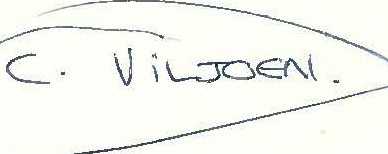 C. ViLJOEN.